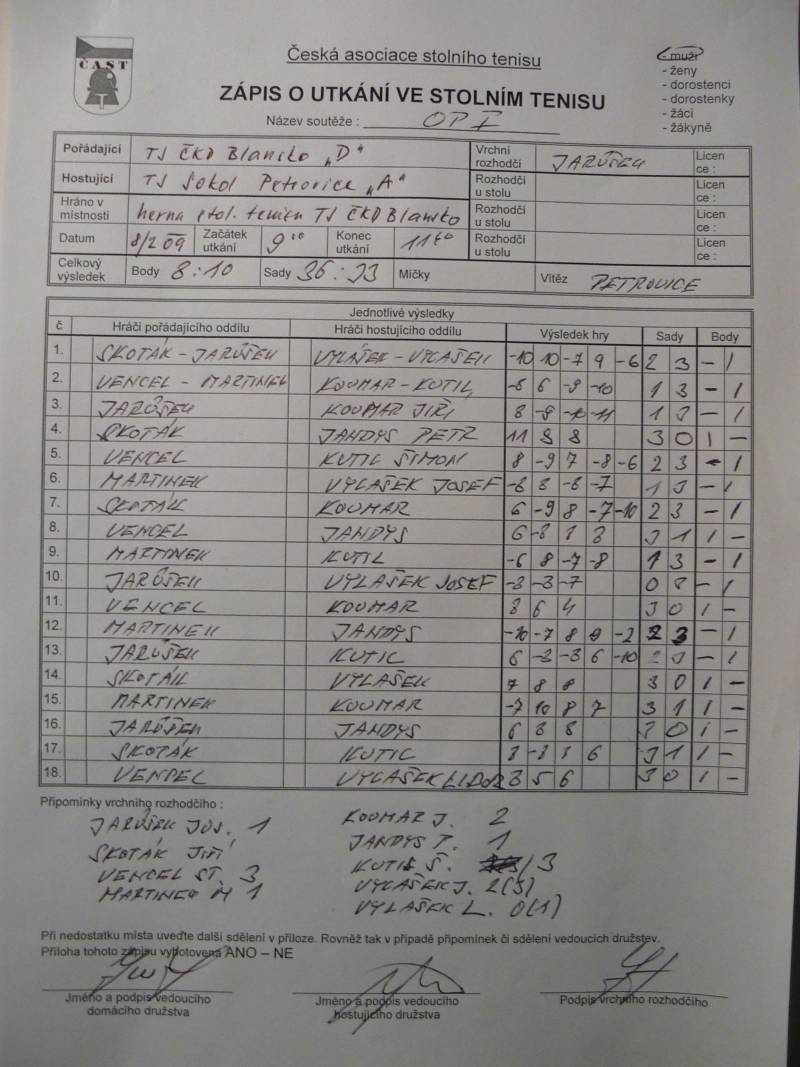 ČAST
Česká asociace stolního tenisu
ZÁPIS O UTKÁNÍ VE STOLNÍM TENISU
Název soutěže : OP I
- muži
- ženy
- dorostenci
- dorostenky
- žáci
- žákyně
Pořádající TJ ČKD Blansko „D“ Vrchní rozhodčí JARŮŠEK Licence :
Hostující TJ Sokol Petrovice „A“ Rozhodčí u stolu Licence :
Hráno v místnosti herna stol. tenisu TJ ČKD Blansko Rozhodčí u stolu Licence :
Datum 8/2 09 Začátek utkání 9 00 Konec utkání Rozhodčí u stolu Licence :
Celkový výsledek Body 8:10 Sady 36:33 Míčky Vítěz PETROVICE
Jednotlivé výsledky
č Hráči pořádajícího oddílu Hráči hostujícího oddílu Výsledek hry Sady Body
1. SKOTÁK - JARŮŠEK VYLAŠEK - VYLAŠEK -10 10 -7 9 -6 2 3 - 1
2. VENCEL - MARTINEK KOUMAR - KUTIL -6 6 -9 -10 1 3 - 1
3. JARŮŠEK KOUMAR JIŘÍ 8 -9 -10 -11 1 3 - 1
4. SKOTÁK JANDYS PETR 11 8 8 3 0 1 -
5. VENCEL KUTIL ŠIMON 8 -9 7 -8 -6 2 3 - 1
6. MARTINEK VYLAŠEK JOSEF -8 8 -6 -7 1 3 - 1
7. SKOTÁK KOUMAR 6 -9 8 -7 -10 2 3 - 1
8. VENCEL JANDYS 6 3 1 1 -
9. MARTINEK KUTIL -6 8 -7 -8 1 3 - 1
10. JARŮŠEK VYLAŠEK JOSEF -3 -3 -7 0 3 - 1
11. VENCEL KOUMAR 8 6 4 3 0 1 -
12. MARTINEK JANDYS -10 -7 8 9 -2 2 3 - 1
13. JARŮŠEK KUTIL 6 -3 -3 6 -10 2 3 - 1
14. SKOTÁK VYLAŠEK 7 8 8 3 0 1 -
15. MARTINEK KOUMAR -7 10 8 7 3 1 1 -
16. JARŮŠEK JANDYS 6 8 8 3 0 1 -
17. SKOTÁK KUTIL 6 3 1 1 -
18. VENCEL VYLAŠEK LIBOR 8 5 6 3 0 1 -
Připomínky vrchního rozhodčího :
JARŮŠEK JOS. 1 KOUMAR J. 2
SKOTÁK JIŘÍ JANDYS P. 1
VENCEL ST. 3 KUTIL Š. 3
MARTINEK M 1 VYLAŠEK J. 2(3)
VYLAŠEK L. 0(1)
Při nedostatku místa uveďte další sdělení v příloze. Rovněž tak v případě připomínek či sdělení vedoucích družstev.
Příloha tohoto zápisu vyhotovena ANO – NE
Jméno a podpis vedoucího domácího družstva
Jméno a podpis vedoucího hostujícího družstva
Podpis vrchního rozhodčího